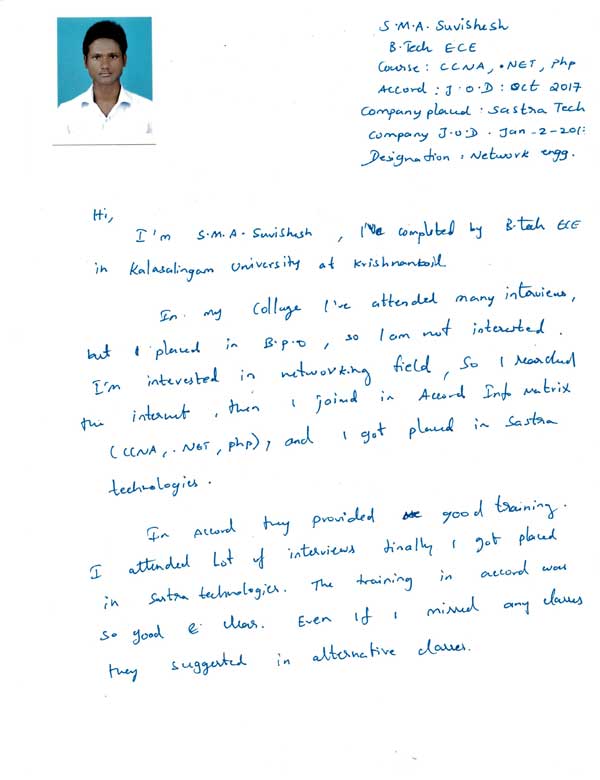 S.M.A. Suvishesh
B.Tech ECE
Course: CCNA, .NET, php
Accord: J.O.D: Oct 2017
Company placed. Sastra Tech
Company J.O.D. Jan-2-201
Designation: Network engg.
Hi,
I'm S.M.A. Suvishesh, I've completed by B.tech ECE
in Kalasalingam University at Krishnankoil
In my college I've attended many interviews,
but I placed in B.P.O, so I am not interested.
I'm interested in networking field, So I reached
the internet, then I joined in Accord Info Matrix
(CCNA, .NET, php), and I got placed in Sastra
technologies.
In Accord they provided good training.
I attended Lot of interviews finally I got placed
in Sastra technologies. The training in accord was
so good & clear. Even if I missed any classes
they suggested in alternative classes.